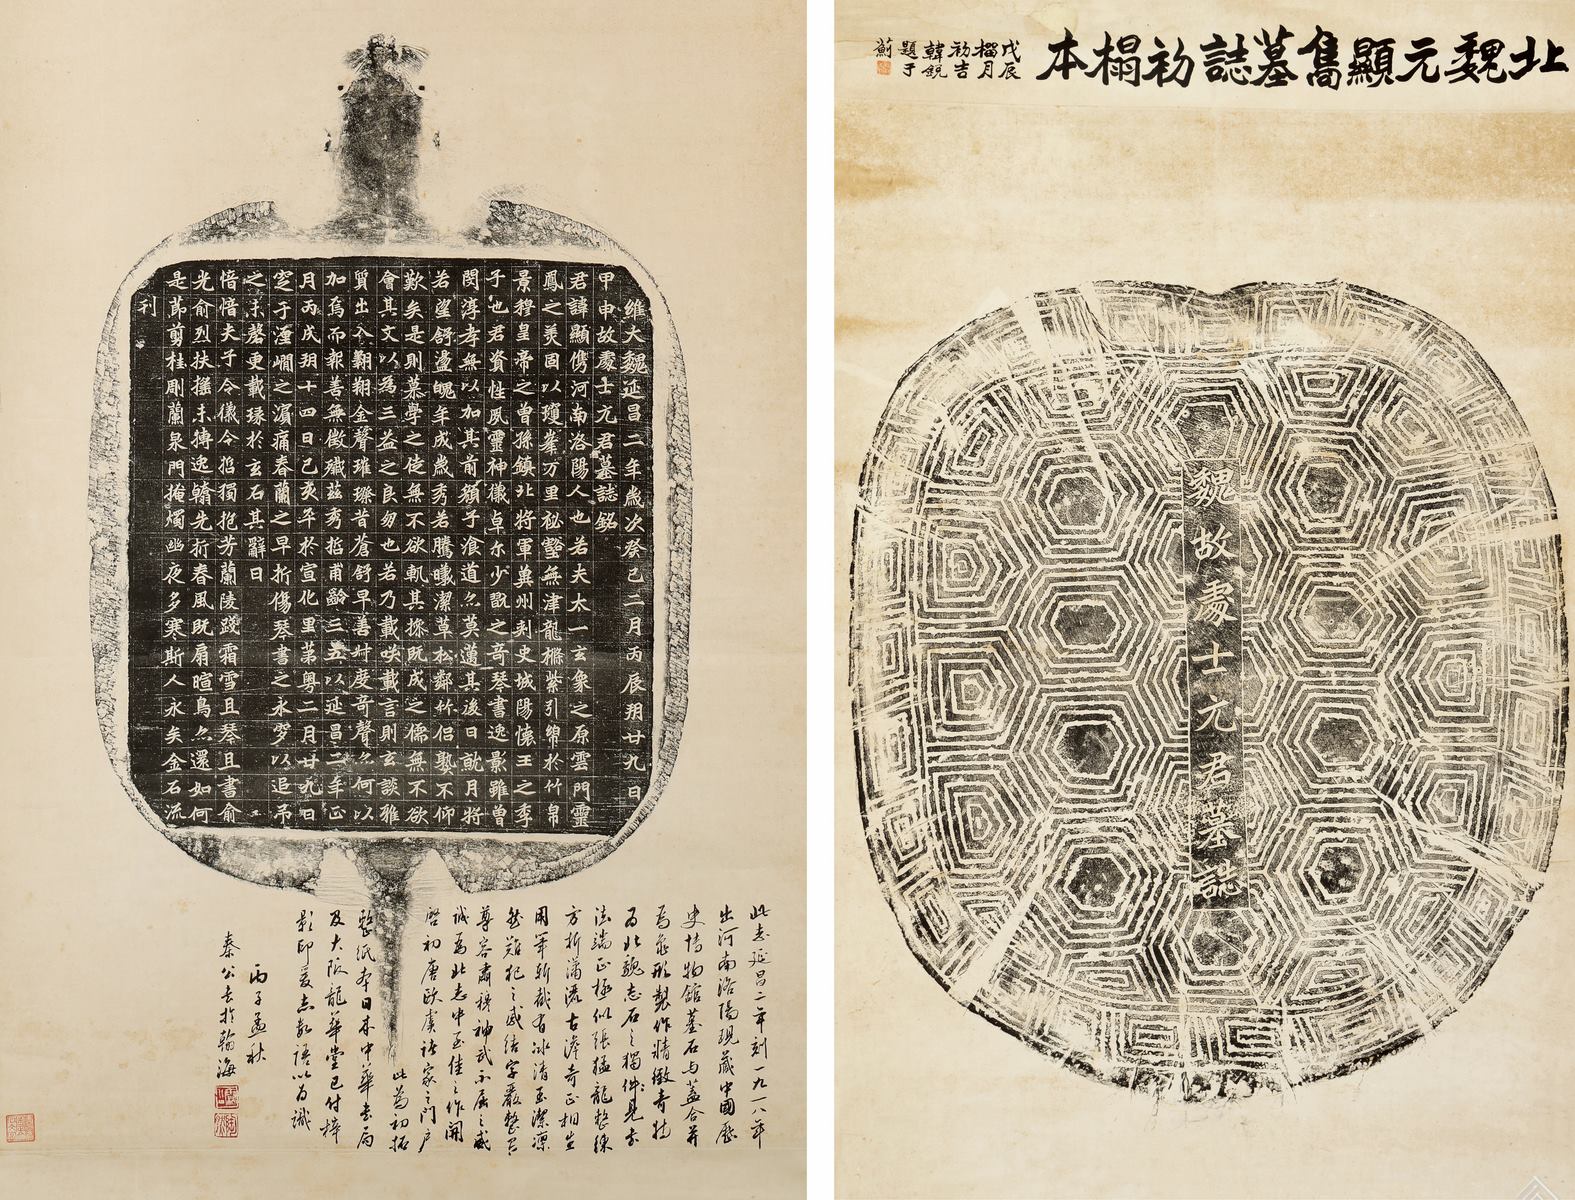 維大魏延昌二年歲次癸巳二月丙辰朔廿九日
甲申故處士元君墓誌銘
君諱顯儁河南洛陽人也若夫太一玄象之原雲門靈
鳳之美固以瓊峯万里祕壑無津龍檦紫引綿於竹帛
景穆皇帝之曾孫鎮北將軍冀州刺史城陽懷王之季
子也君資性夙靈神儀卓尔少翫之奇琴書逸影雖曾
閔淳孝無以加其前顏子飡道亦莫邁其後日就月將
若望舒盪魄年成歲秀若騰曦潔草松鄰竹侶熟不仰
歎矣是則慕學之徒無不欲軌其操既成之儒無不欲
會其文以為三益之良匁也若乃載咲載言則玄談雅
質出入翱翔金聲璀璨昔蒼舒早善叶度奇聲亦何以
加焉而報善無徵殲茲秀哲甫齡三五以延昌二年正
月丙戌朔十四日己亥卒於宣化里第粵二月廿九日
窆于瀍㵎之濱痛春蘭之早折傷琴書之永穸以追弔
之未磬更載琢於玄石其辭曰
愔愔夫子令儀令哲獨抱芳蘭陵踐霜雪且琴且書俞
光俞烈扶搖未摶逸翰先折春風既扇暄鳥亦還如何
是節剪桂彫蘭泉門掩燭幽夜多寒斯人永矣金石流
刊
此志延昌二年刻一九一八年
出河南洛陽現藏中國歷
史博物館墓石與蓋合并
為龜形製作精緻奇特
為北魏志石之獨件見書
法端正極似張猛龍整練
方折瀟灑古澹奇正相生
用筆斬截有冰清玉潔凜
然難犯之感結字嚴整有
尊容肅穆神武不屈之感
誠為北志中至佳之作開
啓初唐歐虞諸家之門戶
此為初拓
整紙本日本中華書局
及大阪龍華堂已付梓
影印爰志數語以為識
丙子孟秋
秦公書於翰海
北魏元顯儁墓誌初榻本
戊辰
榴月
初吉
韓銳
題于
薊
魏故處士元君墓誌